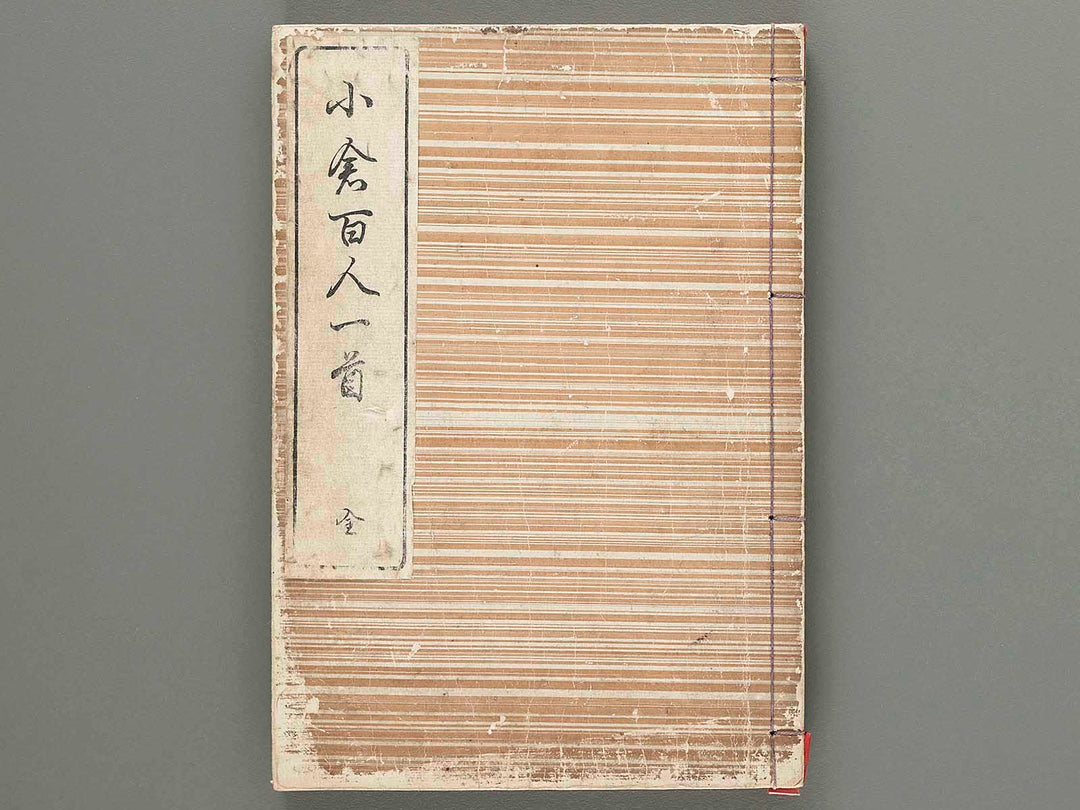 小倉百人一首
全